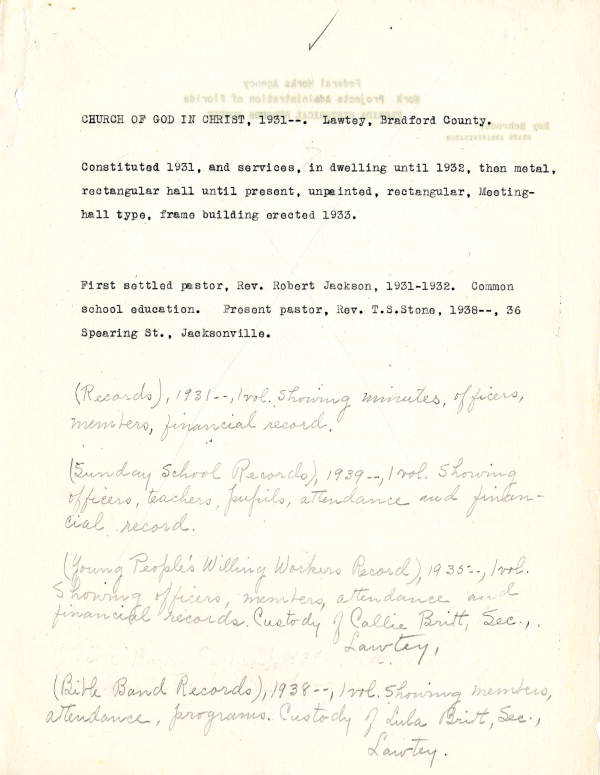 Federal Works Agency
Work Projects Administration of Florida
Roy Schroder
CHURCH OF GOD IN CHRIST, 1931--. Lawtey, Bradford County.
Constituted 1931, and services, in dwelling until 1932, then metal,
rectangular hall until present, unpainted, rectangular, Meeting-
hall type, frame building erected 1933.
First settled pastor, Rev. Robert Jackson, 1931-1932. Common
school education. Present pastor, Rev. T.S.Stone, 1938--, 36
Spearing St., Jacksonville.
(Records), 1931--, 1 vol. Showing minutes, officers,
members, financial record.
(Sunday School Records), 1939--, 1 vol. Showing
officers, teachers, pupils, attendance and finan-
cial record.
(Young People's Willing Workers Record), 1935--, 1 vol.
Showing officers, members, attendance and
financial records. Custody of Callie Britt, Sec.,.
Lawtey,
(Bible Band Records), 1938--, 1 vol. Showing members,
attendance, programs. Custody of Lula Britt, Sec.,
Lawtey.